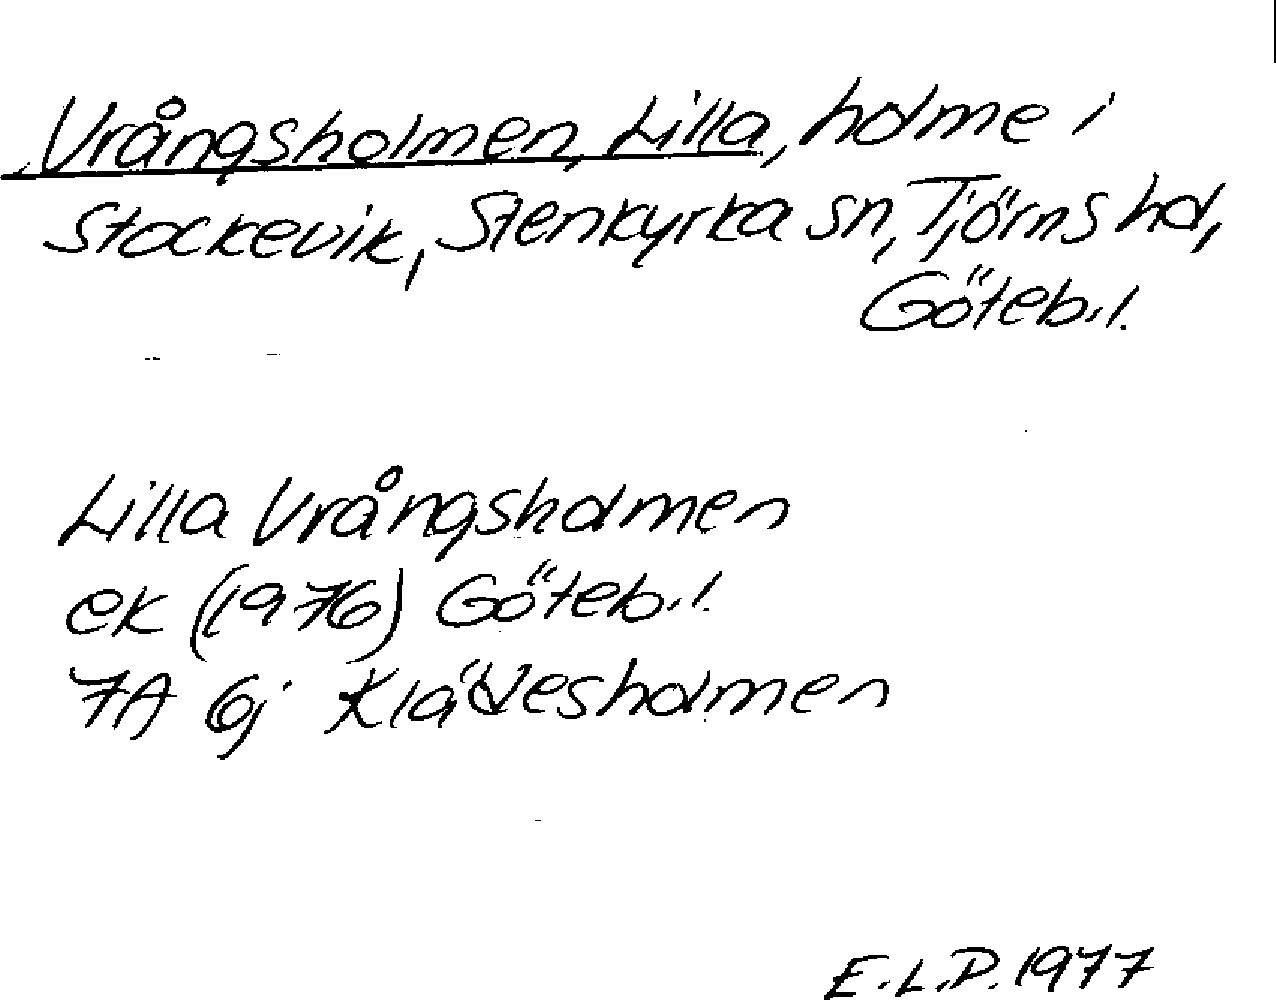 Vrångsholmen, Lilla, holme i
Stockevik, Stenkyrka sn, Tjörns hd,
Göteb. l.
Lilla Vrångsholmen
ek (1976) Göteb. l.
7A 6j Klädesholmen
E.L.D. 1977